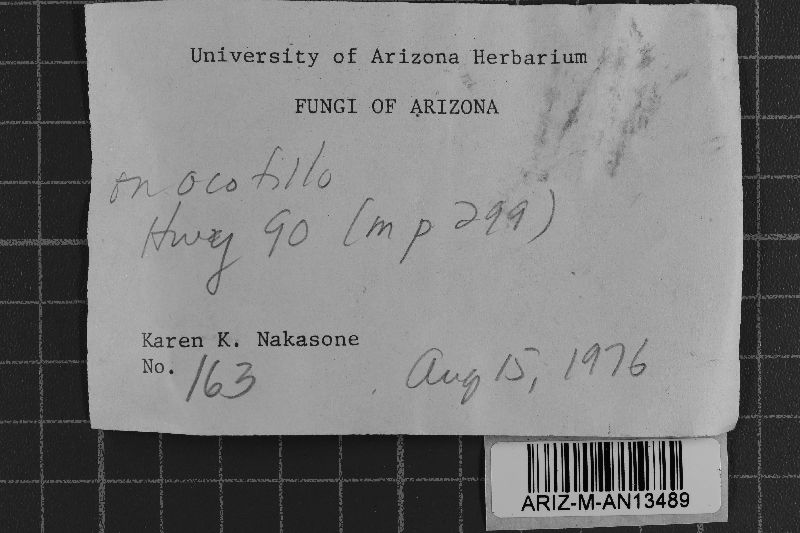 University of Arizona Herbarium
FUNGI OF ARIZONA
on ocotillo
Hwy 90 (mp 299)
Karen K. Nakasone
No. 163
Aug 15, 1976
ARIZ-M-AN13489